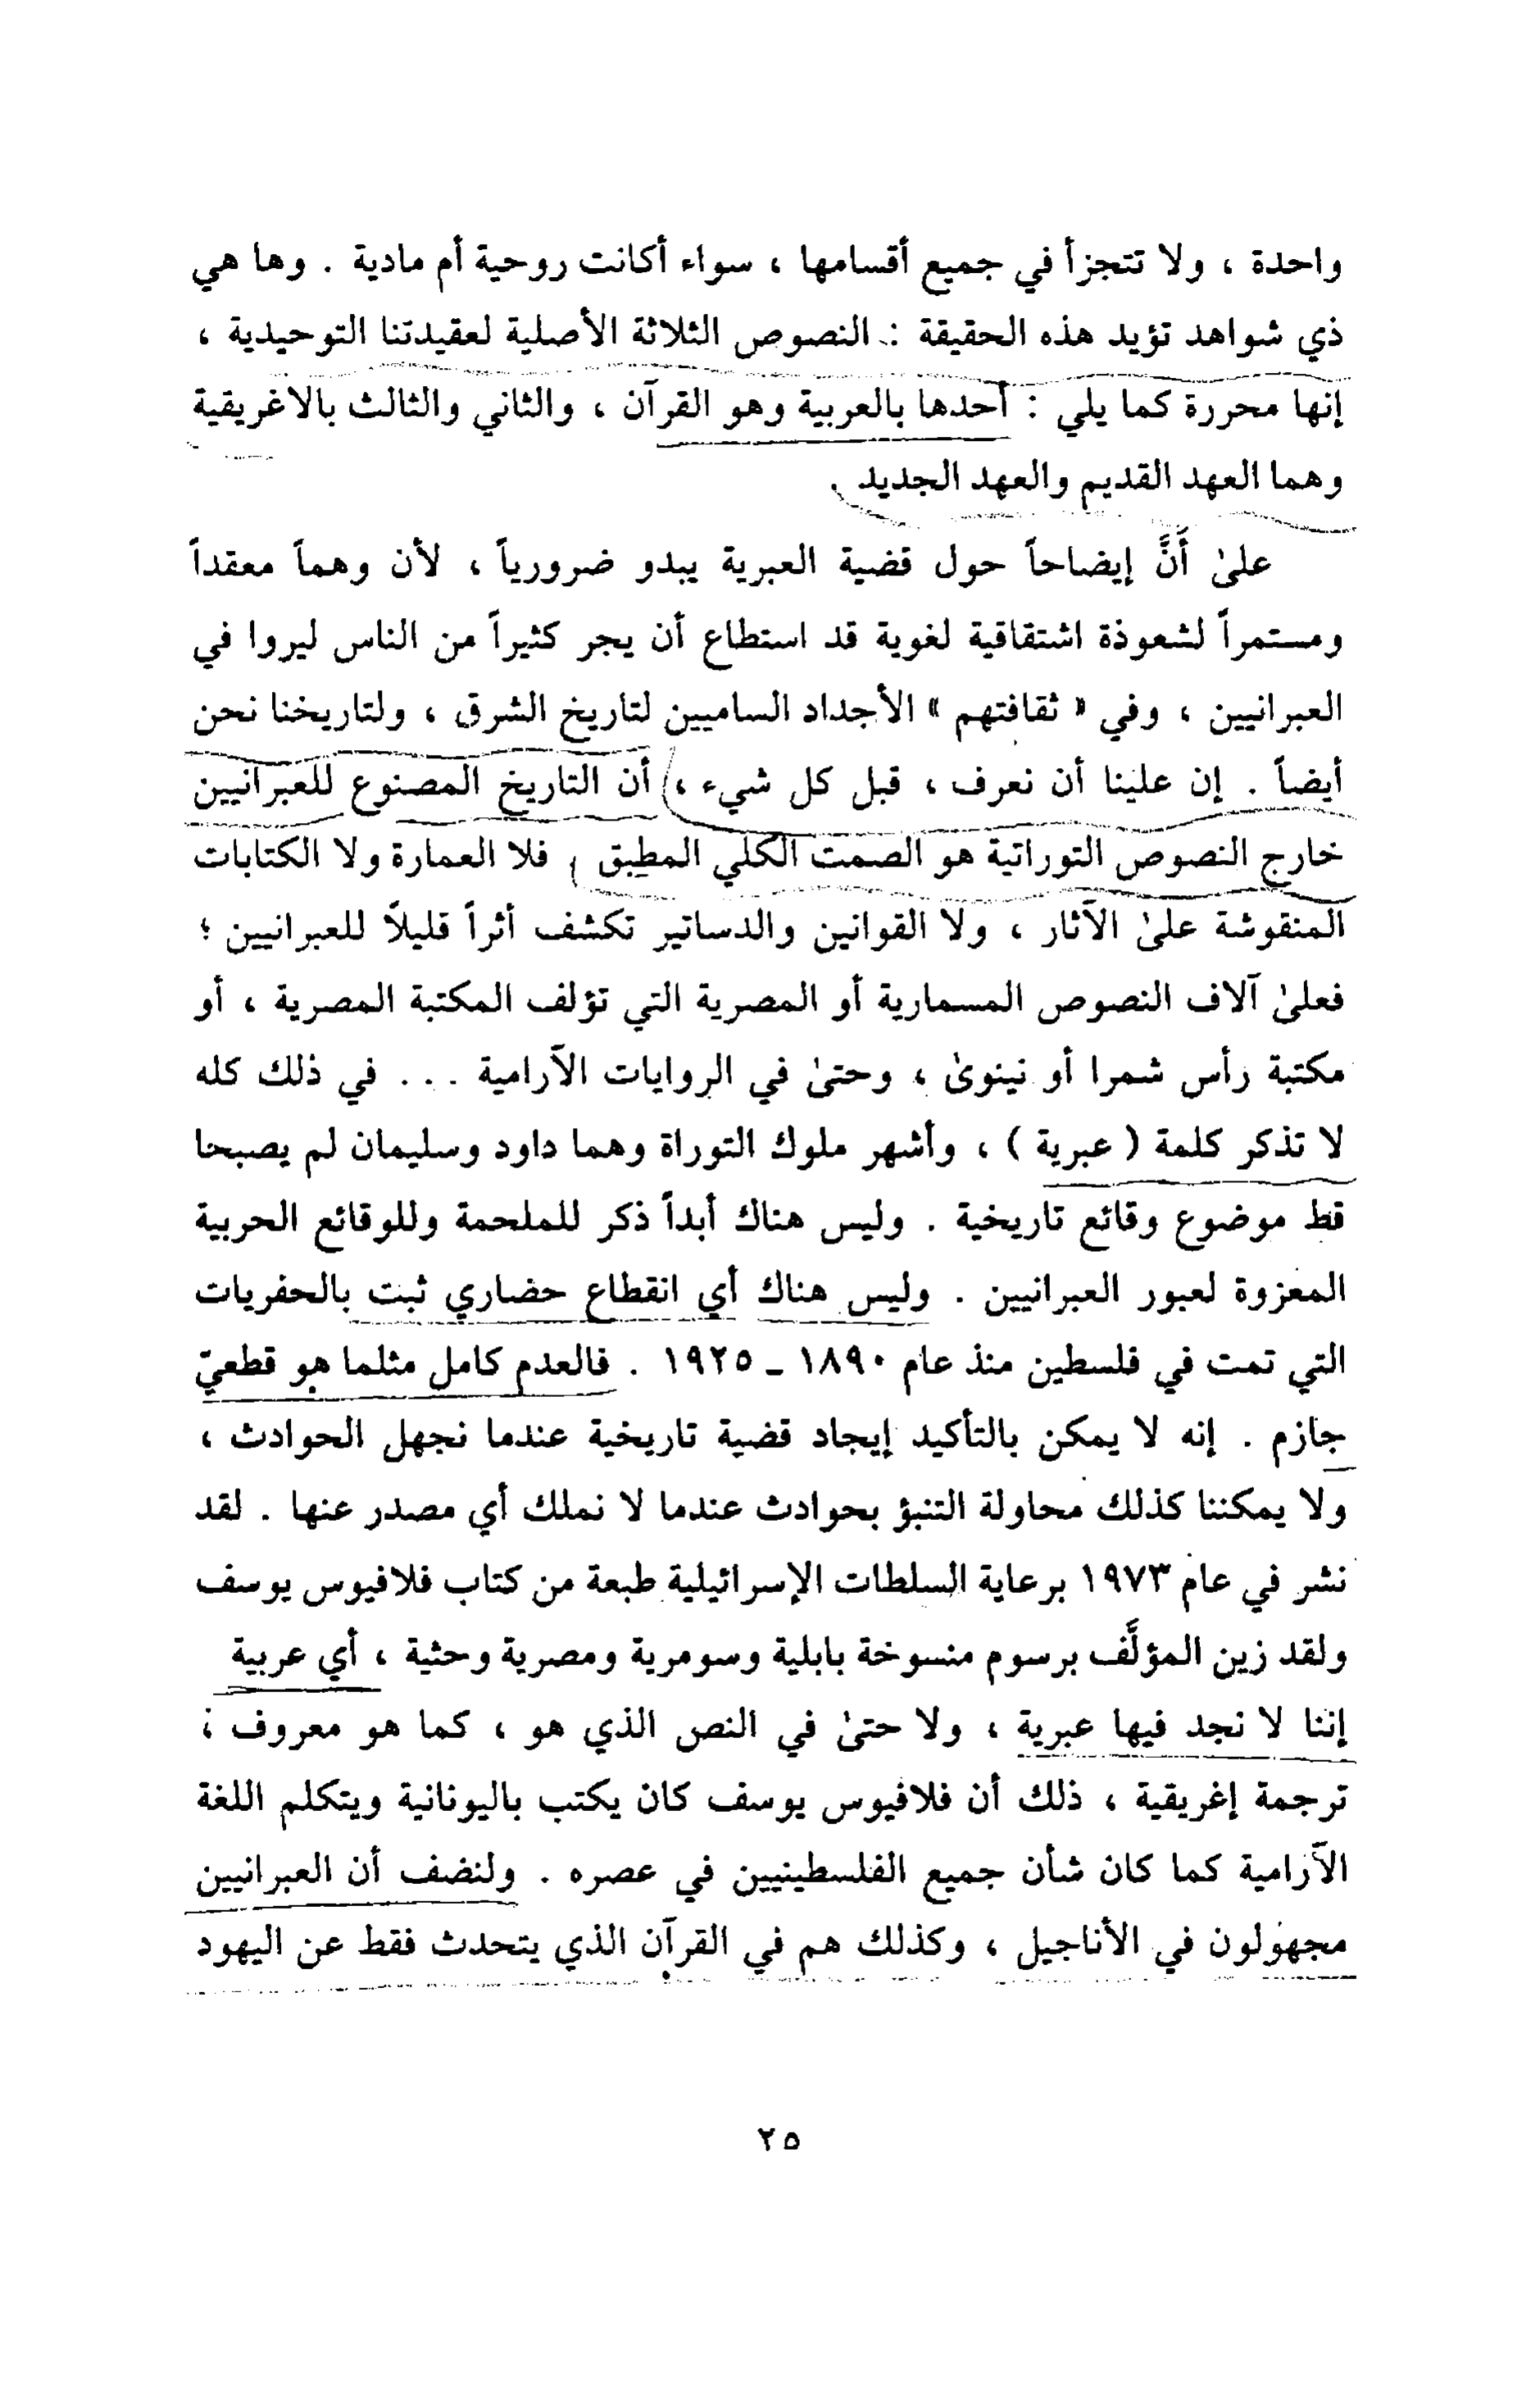 واحدة ، ولا تتجزأ في جميع أقسامها ، سواء أكانت روحية أم مادية . وها هي
ذي شواهد تؤيد هذه الحقيقة : النصوص الثلاثة الأصلية لعقيدتنا التوحيدية ،
إنها محررة كما يلي : أحدها بالعربية وهو القرآن ، والثاني والثالث بالاغريقية
وهما العهد القديم والعهد الجديد .
علىٰ أَنَّ إيضاحاً حول قضية العبرية يبدو ضرورياً ، لأن وهماً معقداً
ومستمراً لشعوذة اشتقاقية لغوية قد استطاع أن يجر كثيراً من الناس ليروا في
العبرانيين ، وفي « ثقافتهم » الأجداد الساميين لتاريخ الشرق ، ولتاريخنا نحن
أيضاً . إن علينا أن نعرف ، قبل كل شيء ، أن التاريخ المصنوع للعبرانيين
خارج النصوص التوراتية هو الصمت الكلي المطبق ، فلا العمارة ولا الكتابات
المنقوشة علىٰ الآثار ، ولا القوانين والدساتير تكشف أثراً قليلاً للعبرانيين ؛
فعلىٰ آلاف النصوص المسمارية أو المصرية التي تؤلف المكتبة المصرية ، أو
مكتبة رأس شمرا أو نينوىٰ ، وحتىٰ في الروايات الآرامية . . . في ذلك كله
لا تذكر كلمة ( عبرية ) ، وأشهر ملوك التوراة وهما داود وسليمان لم يصبحا
قط موضوع وقائع تاريخية . وليس هناك أبداً ذكر للملحمة وللوقائع الحربية
المعزوة لعبور العبرانيين . وليس هناك أي انقطاع حضاري ثبت بالحفريات
التي تمت في فلسطين منذ عام ١٨٩٠ ـ ١٩٢٥ . فالعدم كامل مثلما هو قطعيّ
جازم . إنه لا يمكن بالتأكيد إيجاد قضية تاريخية عندما نجهل الحوادث ،
ولا يمكننا كذلك محاولة التنبؤ بحوادث عندما لا نملك أي مصدر عنها . لقد
نشر في عام ١٩٧٣ برعاية السلطات الإسرائيلية طبعة من كتاب فلافيوس يوسف
ولقد زين المؤلَّف برسوم منسوخة بابلية وسومرية ومصرية وحثية ، أي عربية
إننا لا نجد فيها عبرية ، ولا حتىٰ في النص الذي هو ، كما هو معروف ،
ترجمة إغريقية ، ذلك أن فلافيوس يوسف كان يكتب باليونانية ويتكلم اللغة
الآرامية كما كان شأن جميع الفلسطينيين في عصره . ولنضف أن العبرانيين
مجهولون في الأناجيل ، وكذلك هم في القرآن الذي يتحدث فقط عن اليهود
٢٥